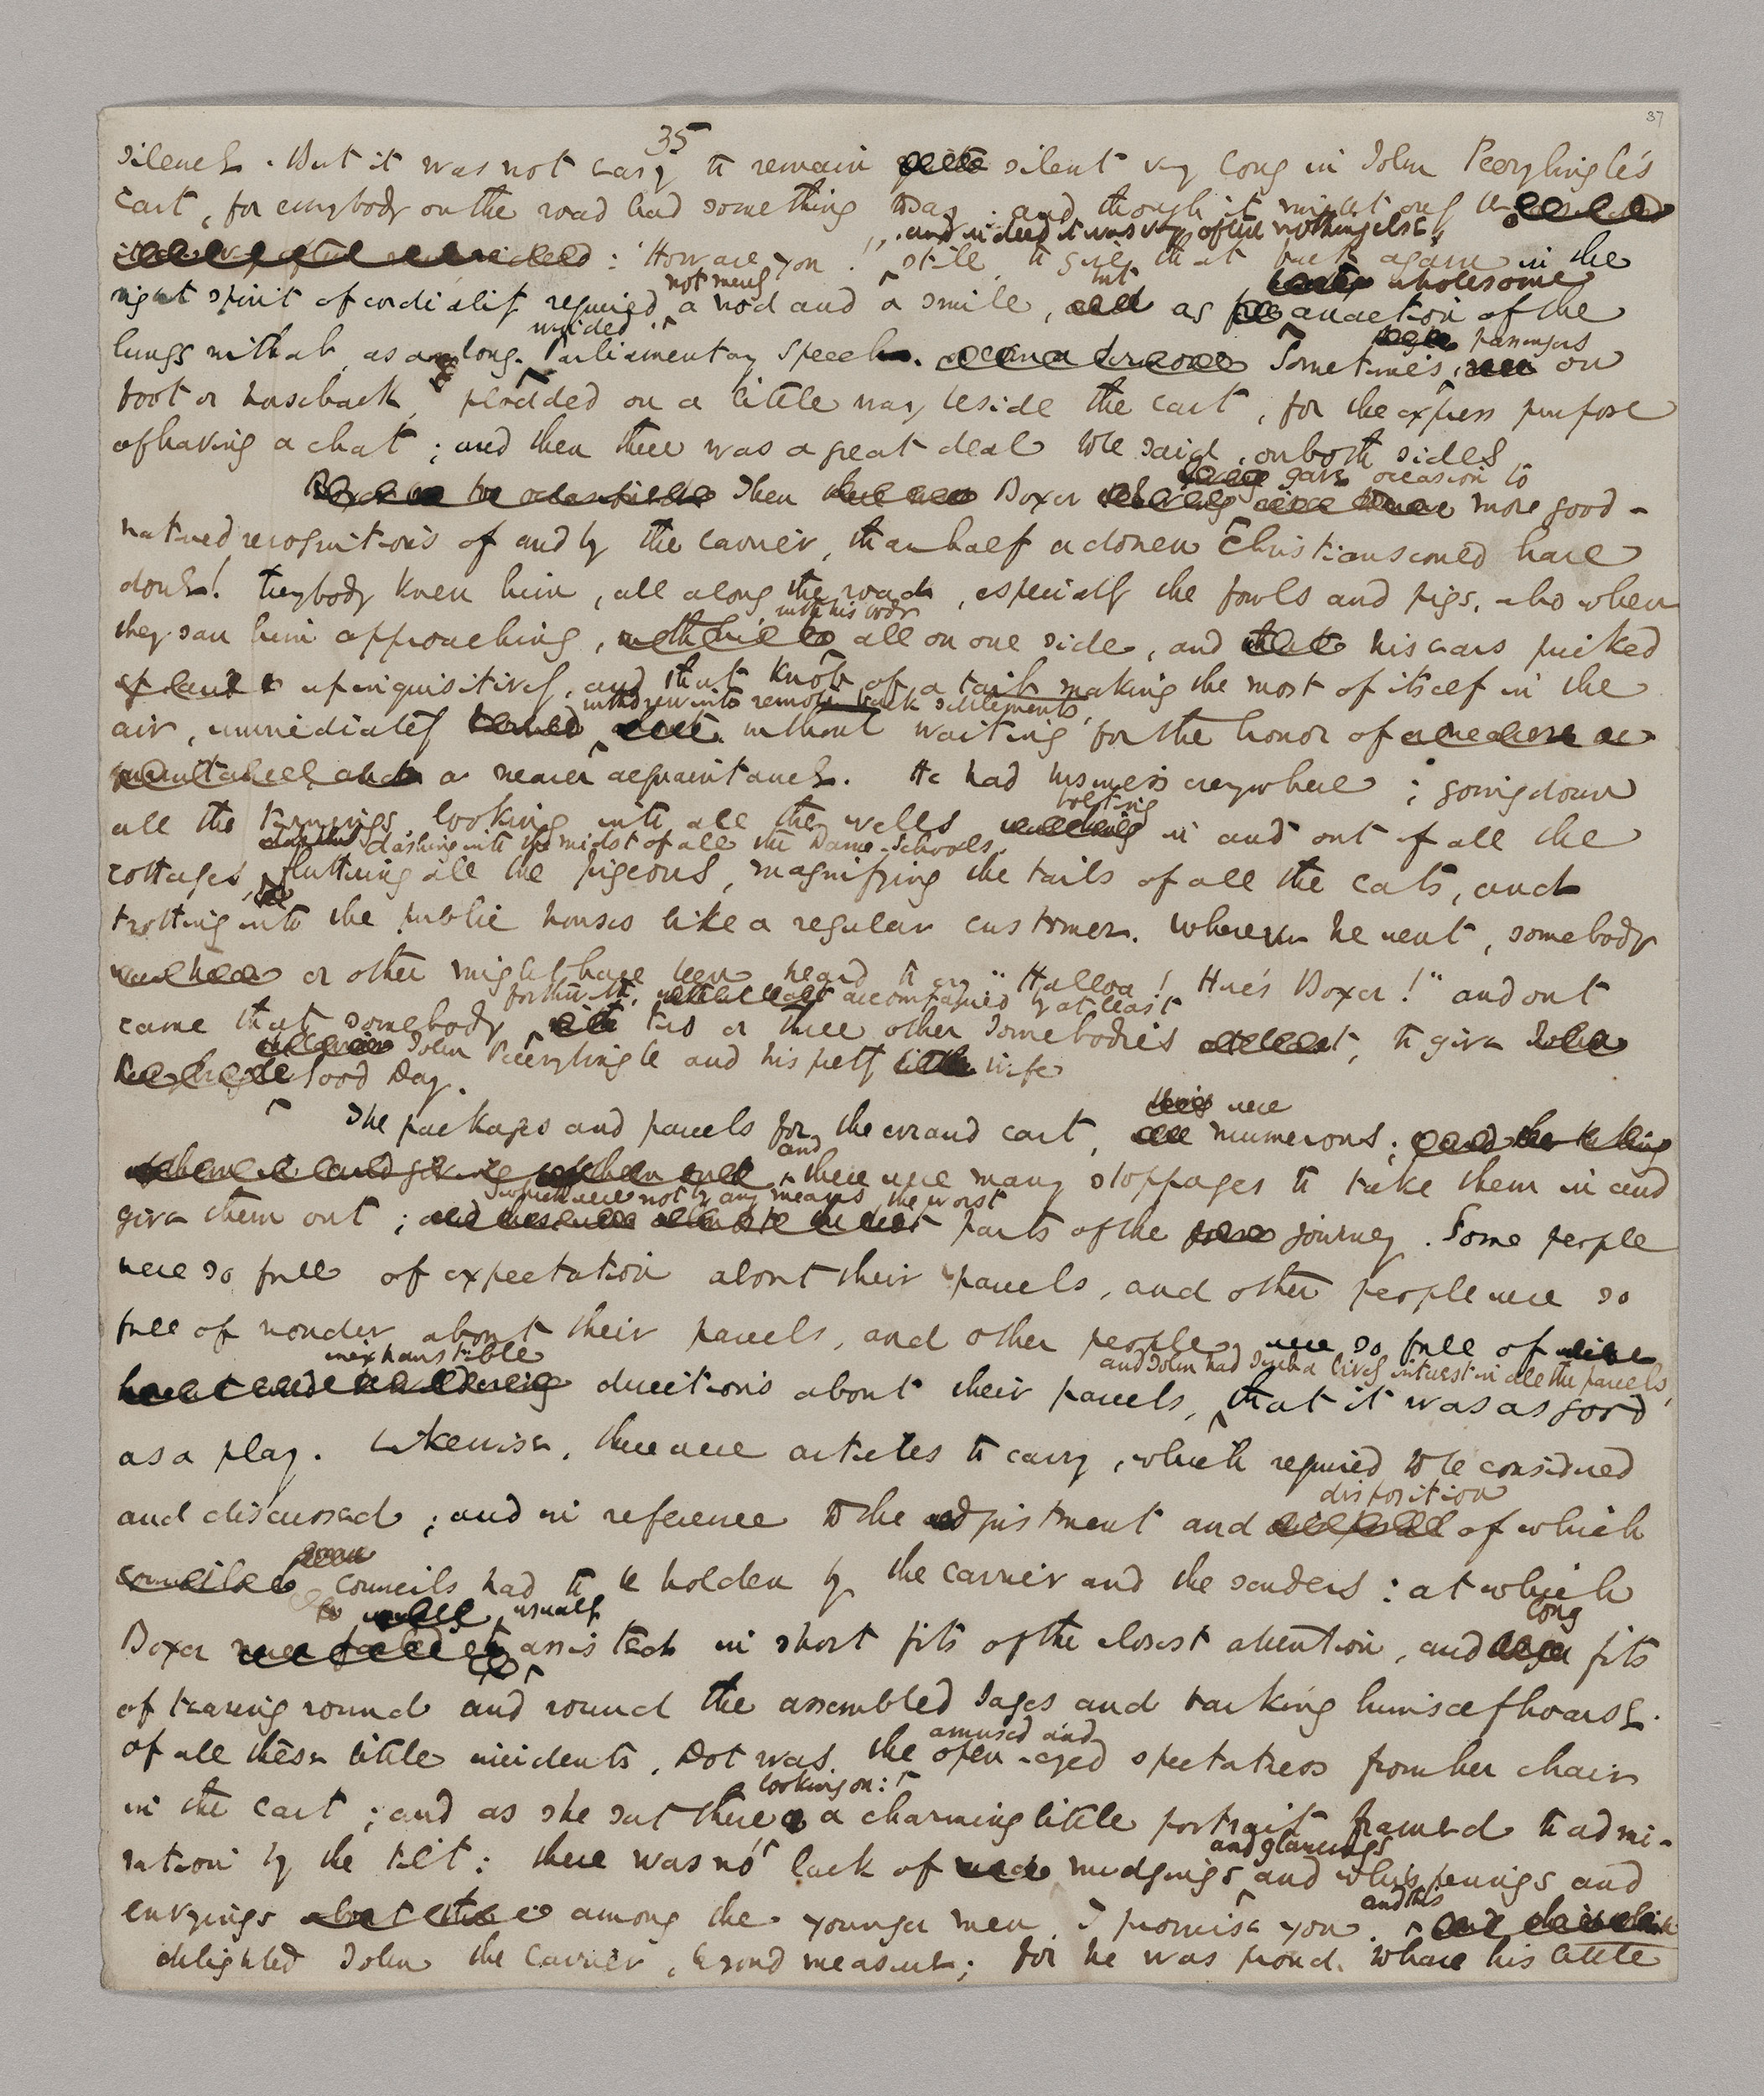 37
35
silence. But it was not easy to remain silent very long in John Peerybingle's
cart, for everybody on the road had something to say; and though it might only be
and indeed it was very often nothing else;
"How are you!" still, to give that back again in the
not merely but wholesome
right spirit of cordiality required a nod and a smile, as an action of the
winded passengers
lungs withal, as a long Parliamentary Speech. Sometimes, on
foot or horseback, plodded on a little way beside the cart, for the express purpose
of having a chat; and then there was a great deal to be said, on both sides
gave occasion to
Then Boxer more good-
natured recognitions of and by the carrier, than half a dozen Christians could have
done! Everybody knew him, all along the road, especially the fowls and pigs, who when
with his body
they saw him approaching, all on one side, and his ears pricked
up inquisitively, and that knob of a tail making the most of itself in the
withdrew into remote back settlements,
air, immediately without waiting for the honor of
a nearer acquaintance. He had business everywhere; going down
bolting
all the turnings, looking into all the wells in and out of all the
dashing into the midst of all the Dame-Schools,
cottages, fluttering all the pigeons, magnifying the tails of all the cats, and
trotting into the public houses like a regular customer. Wherever he went, somebody
or other might have been heard to cry "Halloa! Here's Boxer!" and out
forthwith, accompanied by at least
came that somebody two or three other somebodies to give
John Peerybingle and his pretty wife
Good Day.
were
The packages and parcels for the errand cart, numerous;
and
there were many stoppages to take them in and
which were not by any means the worst
give them out; parts of the journey. Some people
were so full of expectation about their parcels, and other people were so
full of wonder about their parcels, and other people were so full of
inexhaustible
and John had such a lively interest in all the parcels,
directions about their parcels, that it was as good
as a play. Likewise, there were articles to carry, which required to be considered
disposition
and discussed; and in reference to the adjustment and of which
councils had to be holden by the carrier and the senders: at which
usually long
Boxer assisted in short fits of the closest attention, and fits
of tearing round and round the assembled sages and barking himself hoarse.
amused and
Of all these little incidents, Dot was the open-eyed spectatress from her chair
looking on:
in the cart; and as she sat there a charming little portrait framed to admi-
and glancings
ration by the tilt: there was no lack of nudgings and whisperings and
and this
envyings among the younger men, I promise you.
delighted John the Carrier, beyond measure; for he was proud to have his little